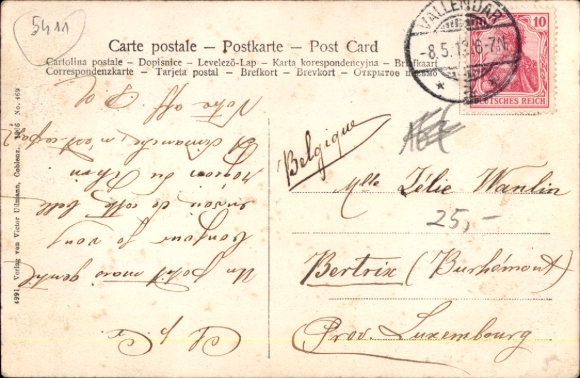 5411
Carte postale – Postkarte – Post Card
Cartolina postale – Dopisnice – Levelező-Lap – Karta korespondencyjna – Briefkaart
Correspondenzkarte – Tarjeta postal – Brefkort – Brevkort – Открытое письмо
VALLENDAR
- 8.5.13. 6-7N.
10
DEUTSCHES REICH
Belgique
Mlle Zélie Wanlin
25,-
Bertrix (Burhémont)
Prov. Luxembourg
Ch p Co
Un petit mais gentil
bonjour je vous
envoie de cette belle
région du Rhin
Et dimanche, n'est-ce pas?
Notre aff
4991 Verlag von Victor Ullmann, Coblenz, 1906 No. 469